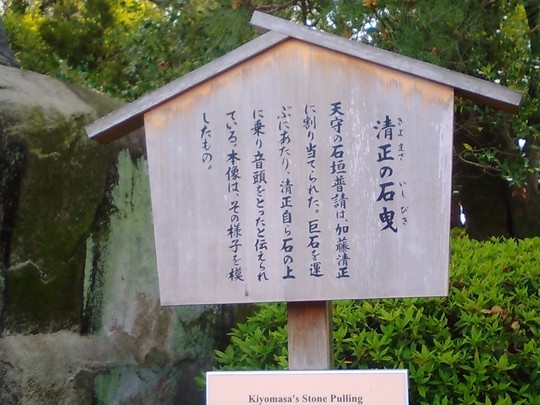 清正の石曳
きよまさ いしびき
天守の石垣普請は、加藤清正
に割り当てられた。巨石を運
ぶにあたり、清正自ら石の上
に乗り音頭をとったと伝えられ
ている。本像は、その様子を模
したもの。
Kiyomasa's Stone Pulling